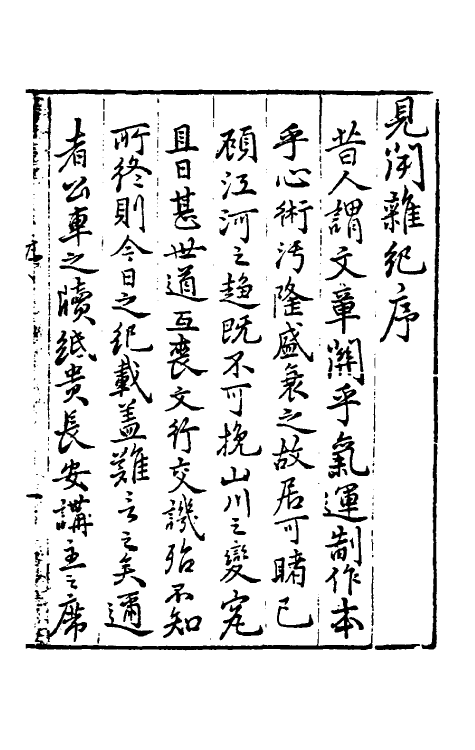 見聞雜紀序
昔人謂文章關乎氣運制作本
乎心術污隆盛衰之故居可睹已
顧江河之趨既不可挽山川之變定
且日甚世道互喪文行交譏殆不知
所終則今日之紀載蓋難言之矣邇
者公車之牘紙贵長安講𡈼之席